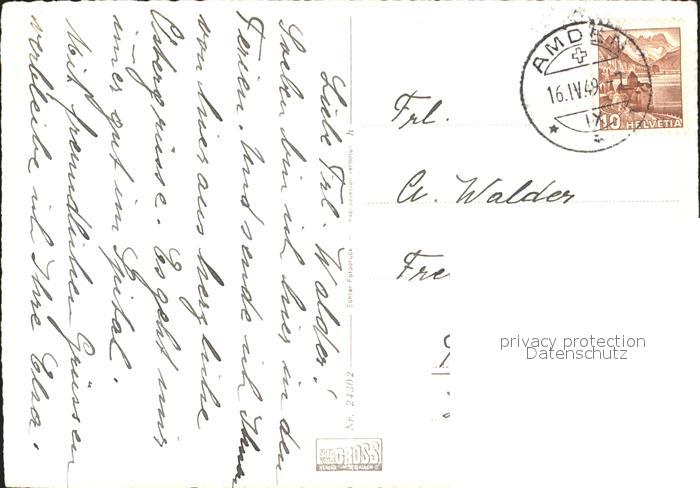 Liebe Frl. Walder!
Soeben bin ich hier in den
Ferien. Und sende ich Ihnen
von hier aus herzliche
Ostergrüsse. Es geht mir
immer gut im Spital.
Mit freundlichen Grüssen
verbleibe ich Ihre Elsa.
Nr. 24302
Echter Fotodruck
GROSS
AMDEN
16.IV.49
10 HELVETIA
Frl.
A. Walder
Fre
privacy protection
Datenschutz